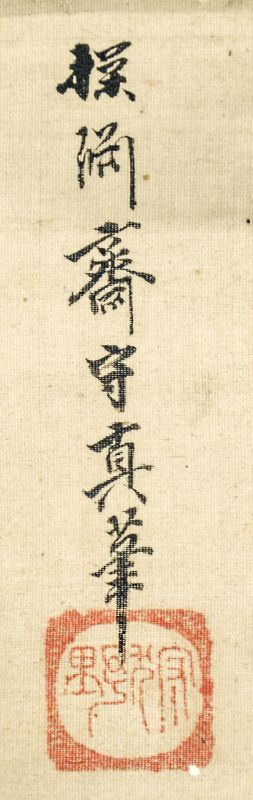 探淵齋守真筆